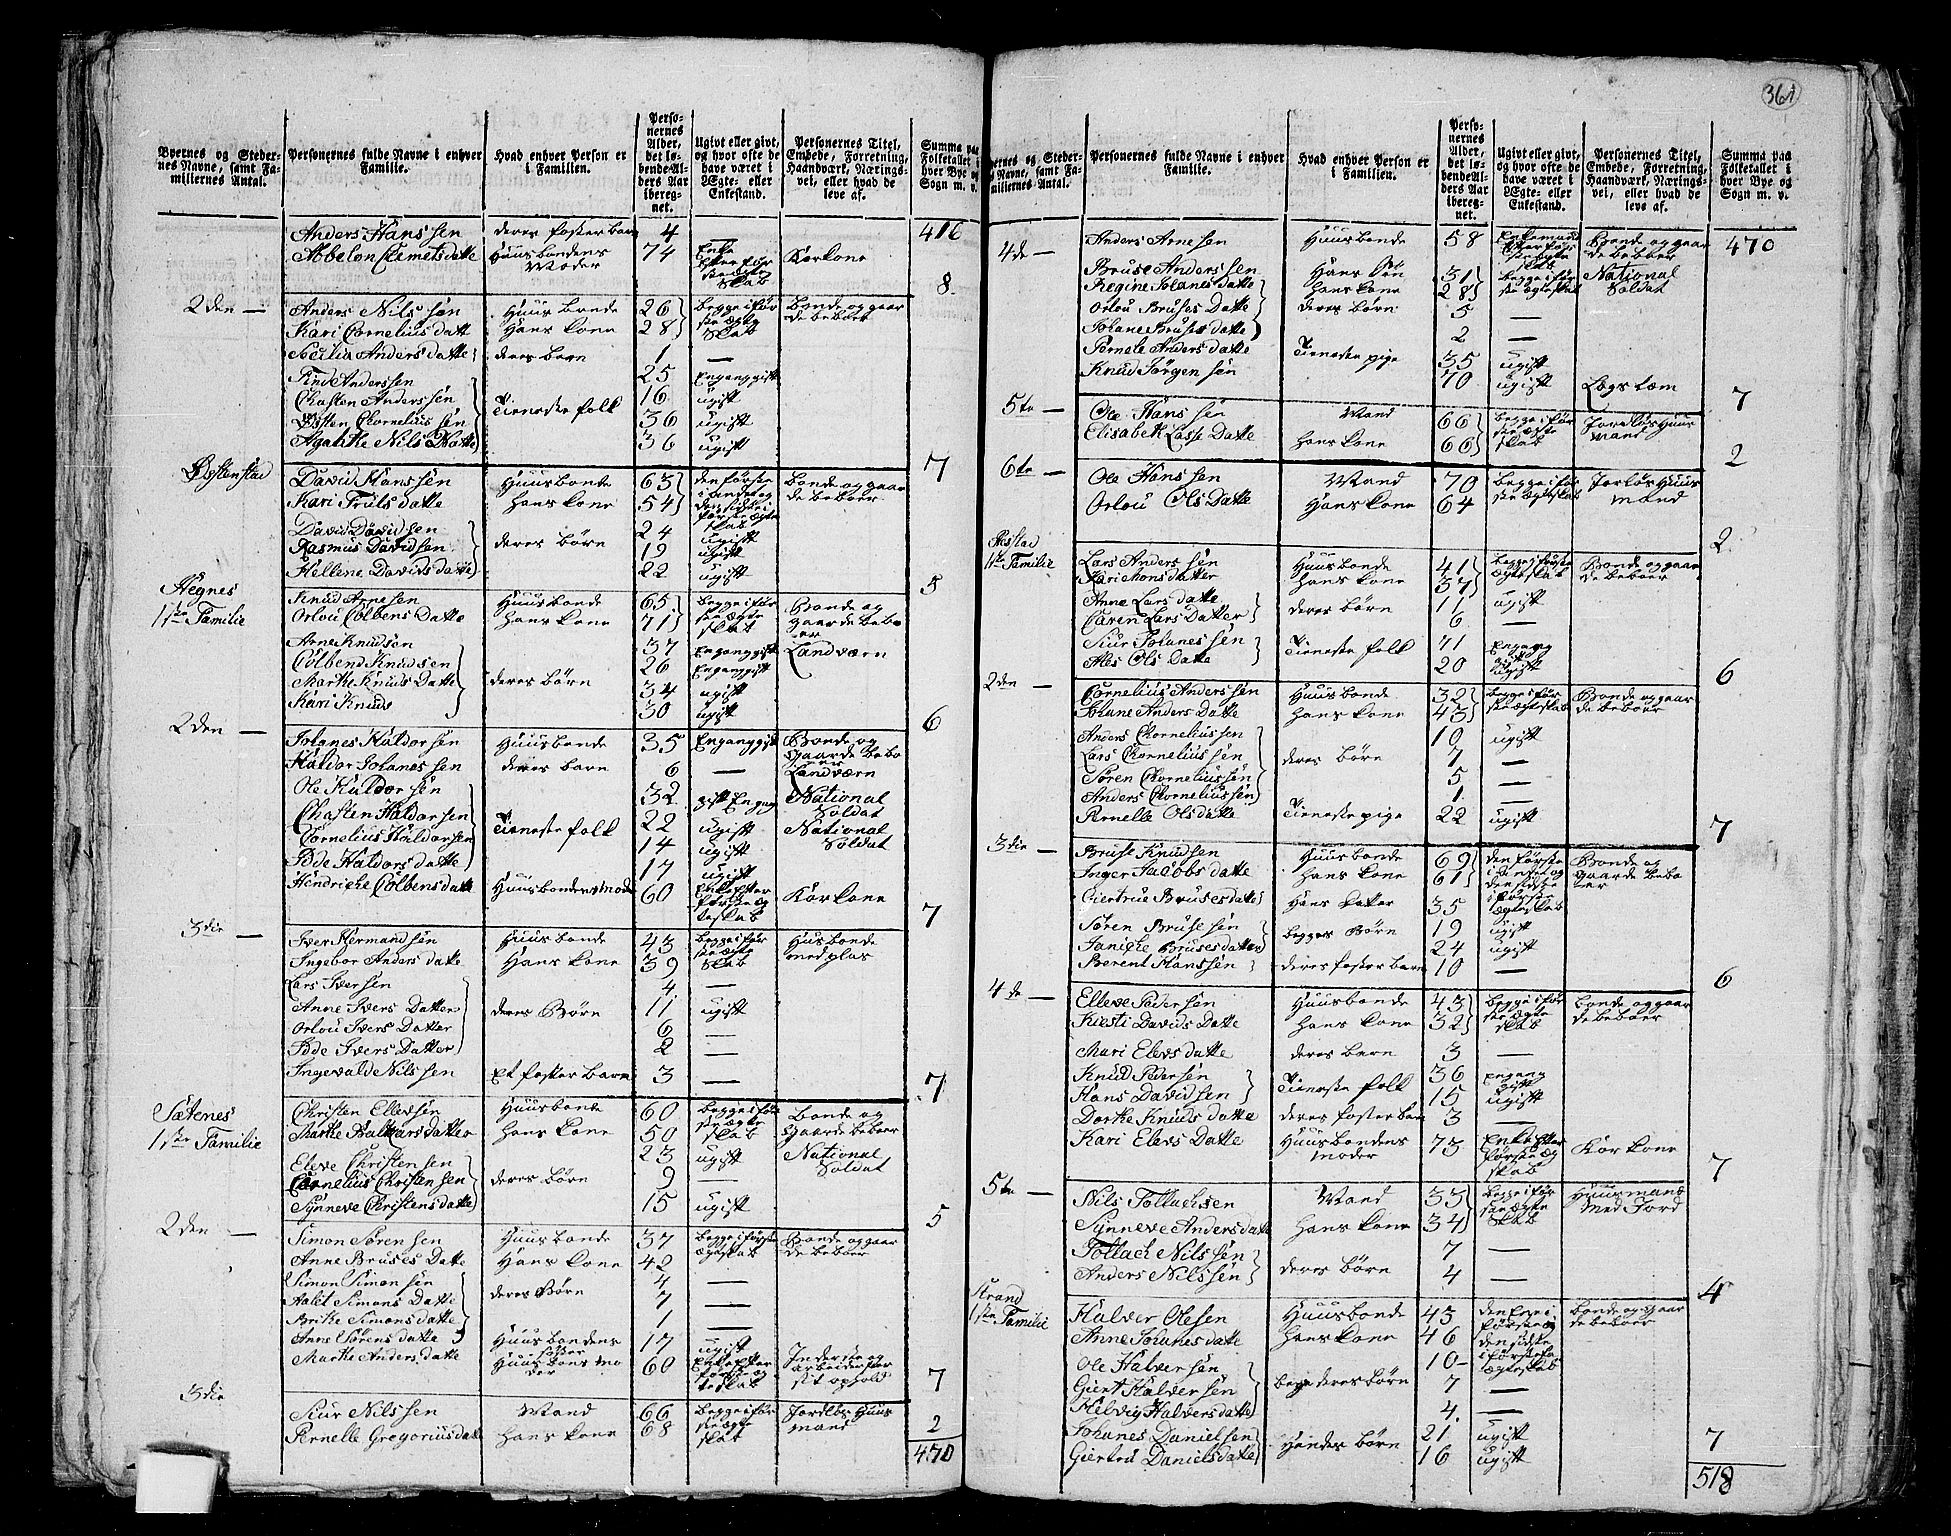 361
Byernes og Stedernes Navne, samt Familiernes Antal.
Personernes fulde Navne i enhver Familie.
Hvad enhver Person er i Familien.
Personernes Alder, det løbende Alders Aar iberegnet.
Ugivt eller givt, og hvor ofte de have været i Ægte- eller Enkestand.
Personernes Titel, Embede, Forretning, Haandværk, Næringsvei, eller hvad de leve af.
Summa paa Folketallet i hver Bye og Sogn m. v.
416
Anders Hanssen deres foster barn 4
Abbelon Clemetsdatte Huusbondens Moder 74 Enke Efter første ægteskab Korkone
8
2den — Anders Nilssen Huusbonde 26 begge i første ægteskab Bonde og gaardebeboer
Kari Cornelius datte Hans kone 28
Secilia Anders datte deres barn 1 —
Find Anderssen 25 Engang gift
Chasten Anderssen Tieneste folk 16 ugift
Østen Chorneliussen 36 ugift
Agathe Nils Datte 36 ugift
7
Østenstad David Hanssen Huusbonde 63 den første i andet og den sidste i første ægteskab Bonde og gaardebeboer
Kari Truls datte Hans kone 54
David Davidsen 24 ugift
Rasmus Davidsen deres børn 19 ugift
Hellene Davids datte 22 ugift
5
Hegnes
1ste Familie Knud Arnesen Huusbonde 65 begge i første ægteskab Bonde og gaardebeboer
Orlou Colbens Datte Hans kone 71
Arne Knudsen 37 Engang gift Landværn
Colbend Knudsen 26 Engang gift
Marthe Knuds Datte deres børn 34 ugift
Kari Knuds 30 ugift
6
2den — Johanes Haldorsen Huusbonde 35 Engang gift Bonde og Gaardebeboer Landværn
Haldor Johanessen deres barn 6 —
Ole Haldorsen 32 gift Engang National Soldat
Chasten Haldorsen Tieneste folk 22 ugift National Soldat
Cornelius Haldorsen 14 ugift
Bode Haldors datte 17 ugift
Hendriche Colbensdatte Huusbondens mode 60 Enke efter første ægteskab Korkone
7
3die — Iver Hermandsen Huusbonde 43 begge i første ægteskab Husbonde med plas
Ingebor Anders datte Hans kone 39
Lars Iversen 4 —
Anne Ivers Datter deres Børn 11 ugift
Orlou Ivers Datter 6 —
Bode Ivers Datter 2 —
Ingevald Nilssen Et foster barn 3 —
7
Sætenes
1ste Familie Christen Ellevsen Huusbonde 60 begge i første ægteskab Bonde og Gaardebeboer
Marthe Haldorsdatter Hans kone 50
Eleve Christensen 23 ugift National Soldat
Cornelius Christensen deres børn 9 —
Synneve Christens datte 15 ugift
5
2den — Simon Sørensen Huusbonde 37 begge i første ægteskab Bonde og gaardebeboer
Anne Bruses Datte Hans kone 42
Simon Simonsen deres Børn 4 —
Aalet Simons Datte 7 —
Brithe Simons datte 1 —
Anne Sørens datte Huusbondens søster 17 ugift
Marthe Anders datte Huusbons moder 60 Enke efter første ægteskab Inderste og arbeider for sit ophold
7
3die Siur Nilssen Mand 66 begge i første ægteskab Jordløs Huusmand
Pernelle Gregorius datte Hans kone 68
2
470
Byernes og Stedernes Navne, samt Familiernes Antal.
Personernes fulde Navne i enhver Familie.
Hvad enhver Person er i Familien.
Personernes Alder, det løbende Alders Aar iberegnet.
Ugivt eller givt, og hvor ofte de have været i Ægte- eller Enkestand.
Personernes Titel, Embede, Forretning, Haandværk, Næringsvei, eller hvad de leve af.
Summa paa Folketallet i hver Bye og Sogn m. v.
470
4de — Anders Arnesen Huusbonde 58 Enkemand Efter første ægteskab Bonde og gaardebeboer
Bruse Anderssen Hans Søn 31 begge i første ægteskab National Soldat
Regine Johanes datte Hans kone 28
Orlou Bruses Datte deres børn 5 —
Johane Bruses datte 2 —
Pernele Anders datte Tieneste pige 35 ugift
Knud Jørgensen 70 ugift Lægs lem
7
5te — Ole Hanssen Mand 66 begge i første ægteskab Jordløs Huusmand
Elisabeth Lasse Datte Hans kone 66
2
6te — Ole Hanssen Mand 70 begge i første ægteskab Jorløs Huusmand
Orlou Ols Datte Hans kone 64
2
Ristad
1ste Familie Lars Anderssen Huusbonde 41 begge i første ægteskab Bonde og gaardebeboer
Kari Monsdatter Hans kone 37
Anne Lars datte deres børn 11 ugift
Caren Lars Datter 6 —
Siur Johanessen Tieneste folk 71 Engang gift
Ales Ols Datte 20 ugift
6
2den — Cornelius Anderssen Huusbonde 32 begge i første ægteskab Bonde og gaardebeboer
Johane Anders Datte Hans kone 43
Anders Chorneliussen 10 ugift
Lars Chorneliussen deres børn 7 —
Søren Chorneliussen 5 —
Anders Chorneliussen 1 —
Pernelle Ols datte Tieneste pige 22 ugift
7
3die — Bruse Knudsen Huusbonde 69 den første i andet og den sidste i første ægteskab Bonde og gaardebeboer
Inger Jacobs datte Hans kone 61
Giertrue Bruses datte Hans datter 35
Søren Brusesen begges Børn 19 ugift
Janiche Bruses datter 24 ugift
Berent Hanssen deres foster barn 10 —
6
4de — Elleve Pedersen Huusbonde 43 begge i første ægteskab Bonde og gaardebeboer
Kiesti Davids Datte Hans kone 32
Mari Elevs datte deres barn 3 —
Knud Pedersen Tieneste folk 36 Engang gift
Hans Davidsen 15 ugift
Dorthe Knuds datte deres foster barn 3 —
Kari Elevs Datte Huusbondens moder 73 Enke Efter første ægteskab Korkone
7
5te — Nils Tollachsen Mand 33 begge i første ægteskab Huusmand Med Jord
Synneve Anders datte Hans kone 34
Tollach Nilssen deres børn 7 —
Anders Nilssen 4 —
4
Strand
1ste Familie Halver Olesen Huusbonde 43 den Ene i første og den sidste i første ægteskab Bonde og gaardebeboer
Anne Johanes datte Hans kone 46
Ole Halversen 10 —
Giert Halversen begge deres børn 7 —
Helvig Halvers datte 4 —
Johanes Danielsen Hendes børn 21 ugift
Giertru Daniels datte 16 ugift
7
518